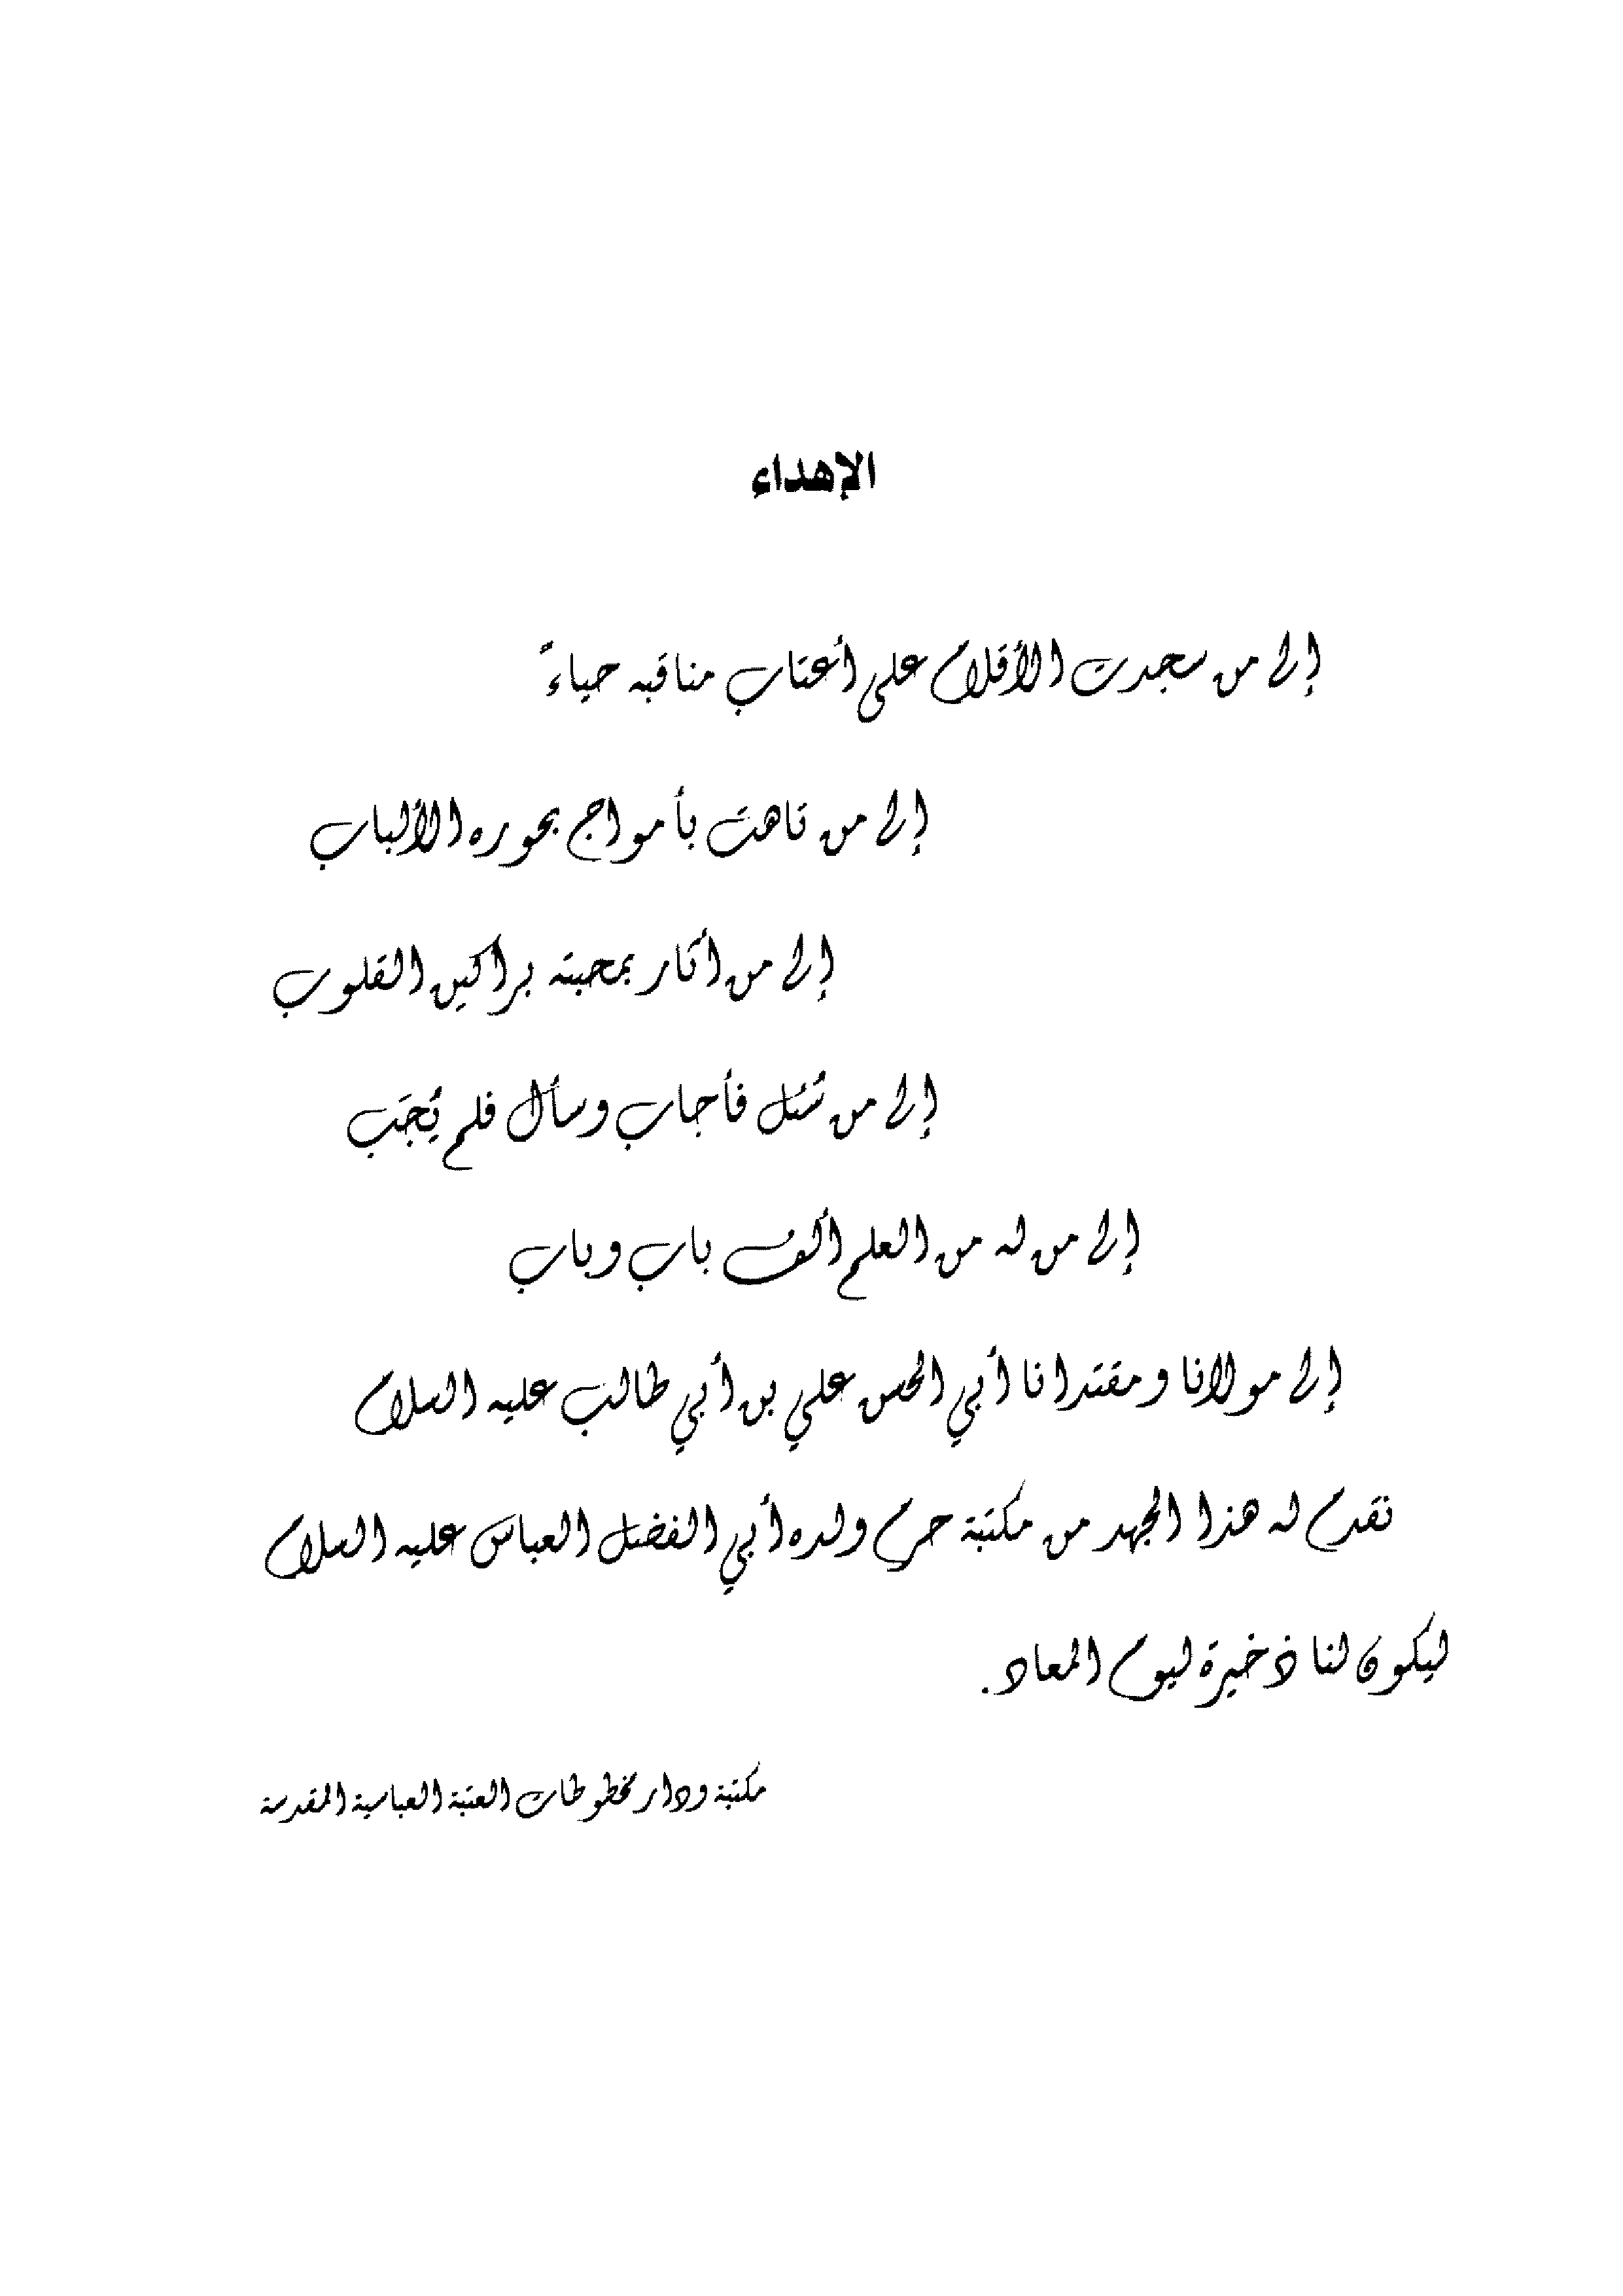 الإهداء
إلى من سجدت الأقلام على أعتاب مناقبه حياءً
إلى من تاهت بأمواج بحوره الألباب
إلى من أثار بمحبته براكين القلوب
إلى من سُئل فأجاب وسأل فلم يُجَب
إلى من له من العلم ألف باب وباب
إلى مولانا ومقتدانا أبي الحسن علي بن أبي طالب عليه السلام
نقدم له هذا الجهد من مكتبة حرم ولده أبي الفضل العباس عليه السلام
ليكون لنا ذخيرة ليوم المعاد.
مكتبة ودار مخطوطات العتبة العباسية المقدسة